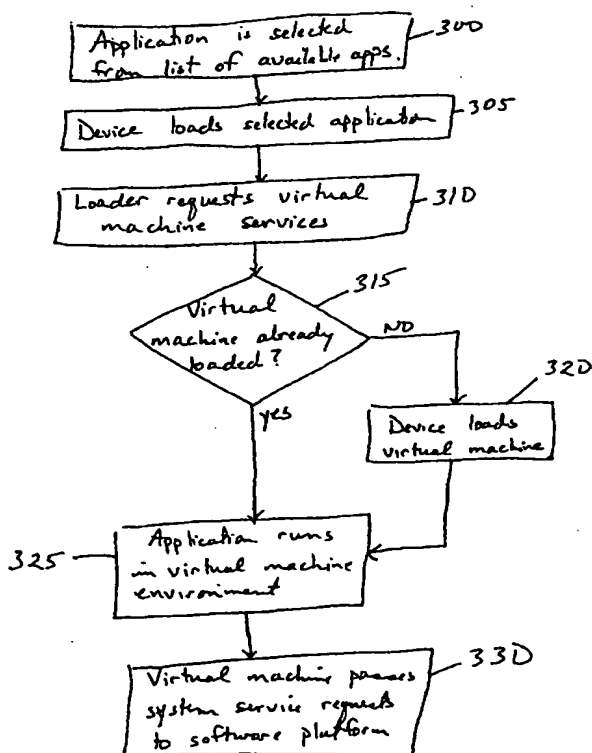 Application is
from list of available apps.
300
Device loads selected application
305
Loader requests virtual
machine services
310
Virtual
machine already
loaded?
315
NO
yes
Device loads
virtual machine
320
Application runs
in virtual machine
environment
325
Virtual machine passes
system service requests
to software platform
330